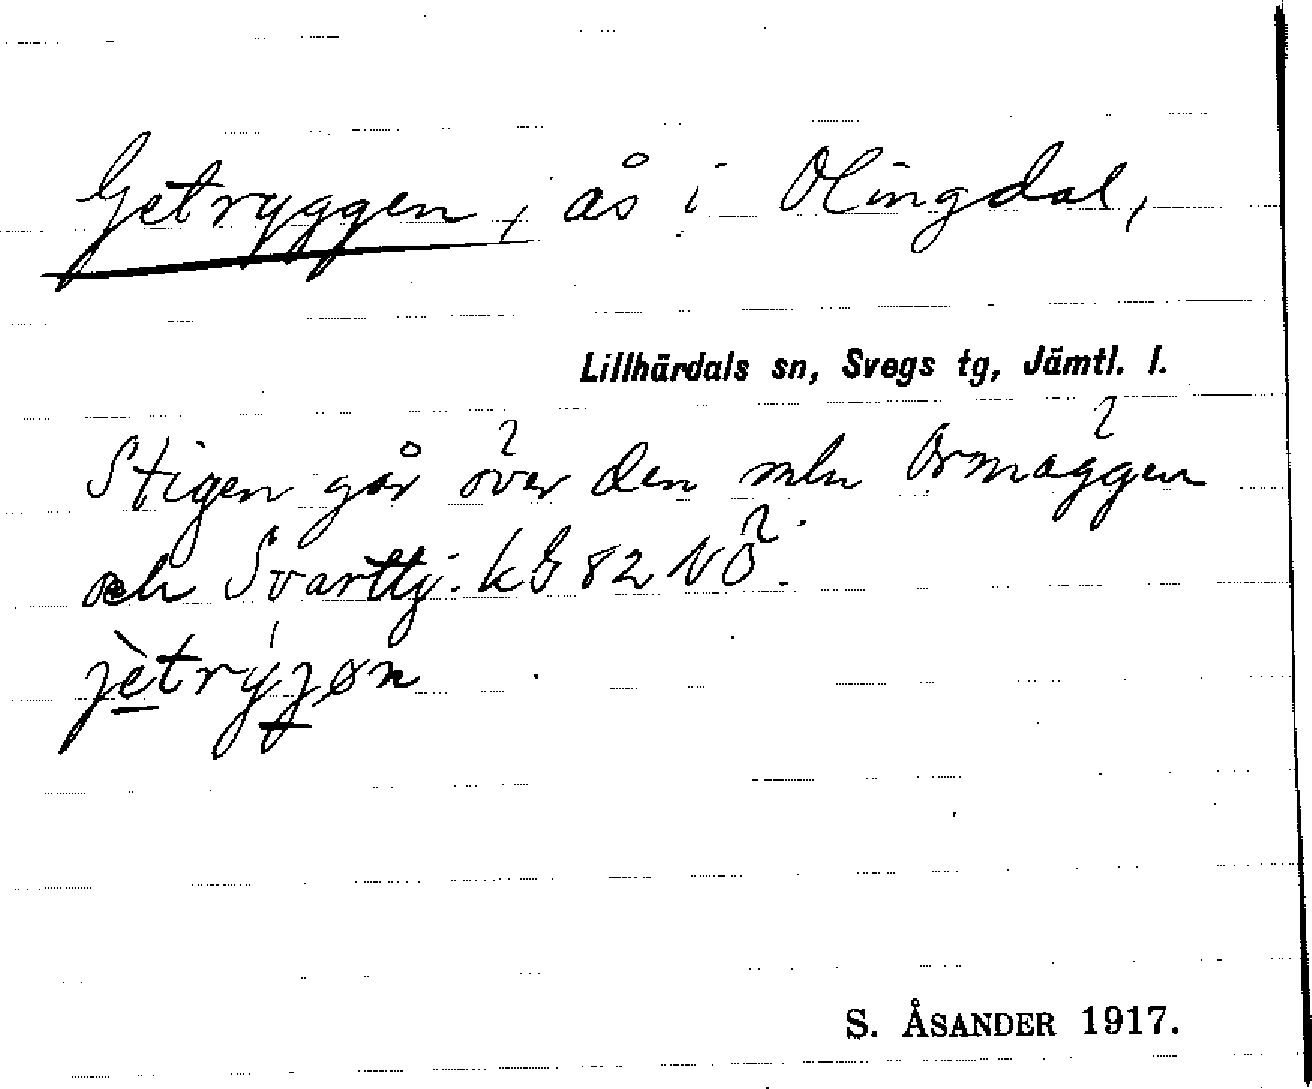 Getryggen, ås i Olingdal,
Lillhärdals sn, Svegs tg, Jämtl. l.
Stigen går över den mln Ormäggen
och Svarttj. kG 82 NÖ.
jètrýjøn
S. ÅSANDER 1917.